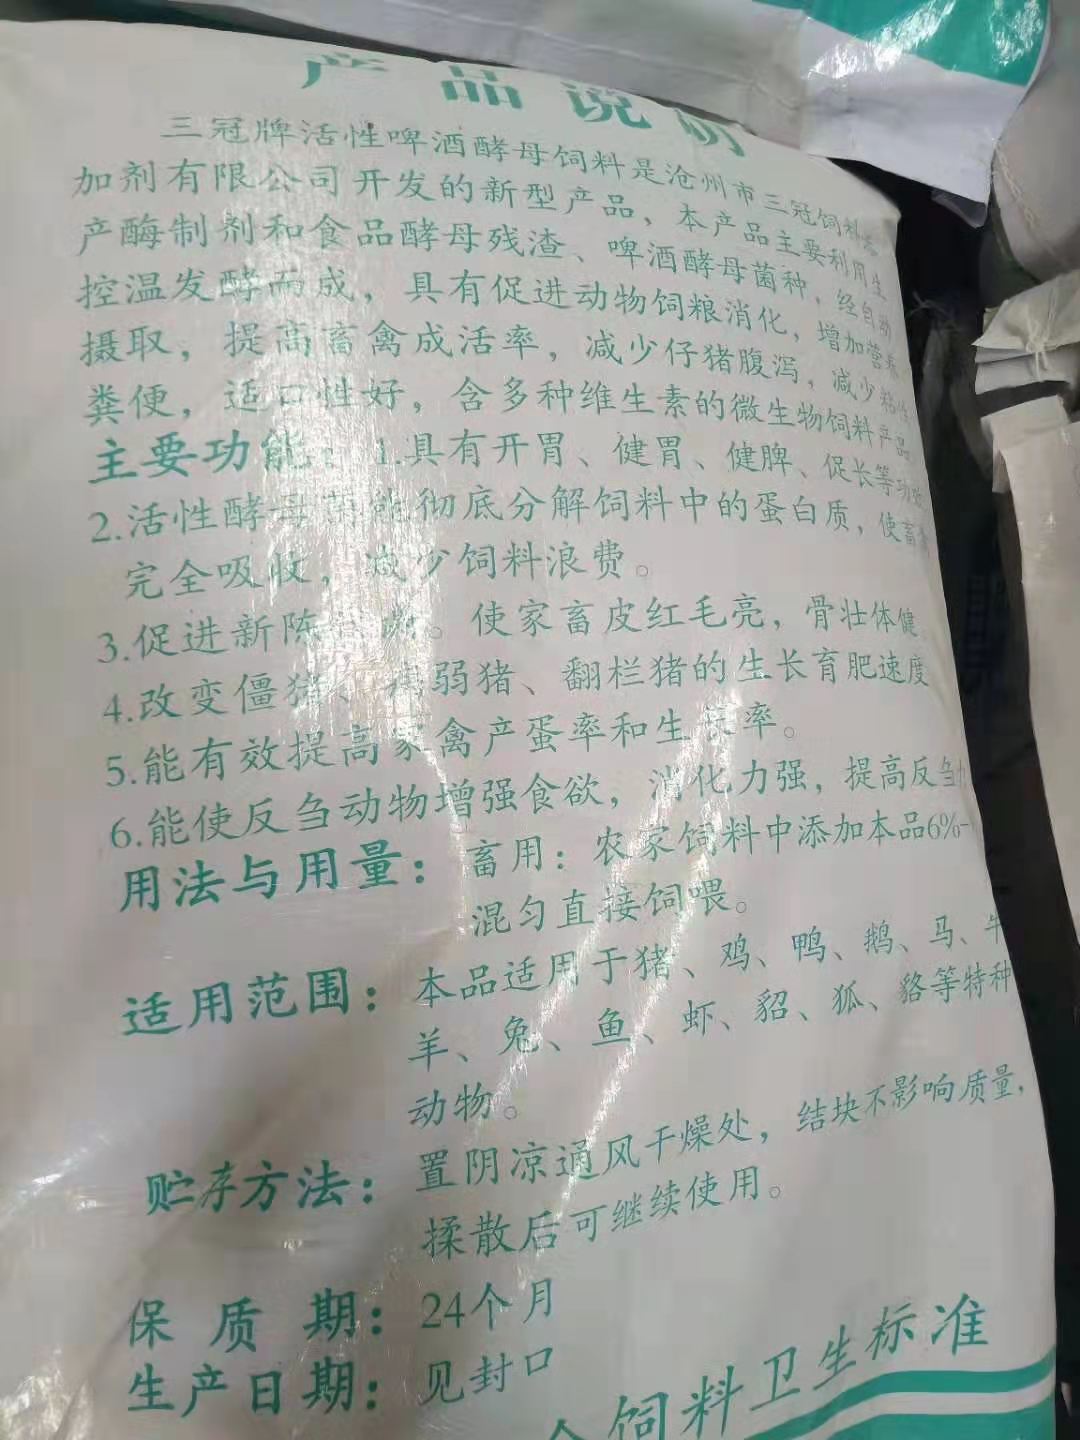 产品说明
三冠牌活性啤酒酵母饲料是沧州市三冠饲料
加剂有限公司开发的新型产品，本产品主要利用生
产酶制剂和食品酵母残渣、啤酒酵母菌种，经自动
控温发酵而成，具有促进动物饲粮消化，增加营养
摄取，提高畜禽成活率，减少仔猪腹泻，减少粘性
粪便，适口性好，含多种维生素的微生物饲料产品
主要功能：1.具有开胃、健胃、健脾、促长等功效
2.活性酵母菌能彻底分解饲料中的蛋白质，使畜禽
完全吸收，减少饲料浪费。
3.促进新陈 。使家畜皮红毛亮，骨壮体健。
4.改变僵猪、 弱猪、翻栏猪的生长育肥速度
5.能有效提高家禽产蛋率和生长率。
6.能使反刍动物增强食欲，消化力强，提高反刍
用法与用量：畜用：农家饲料中添加本品6%-
混匀直接饲喂。
适用范围：本品适用于猪、鸡、鸭、鹅、马、牛
羊、兔、鱼、虾、貂、狐、貉等特种
动物。
贮存方法：置阴凉通风干燥处，结块不影响质量，
揉散后可继续使用。
保质期：24个月
生产日期：见封口
饲料卫生标准